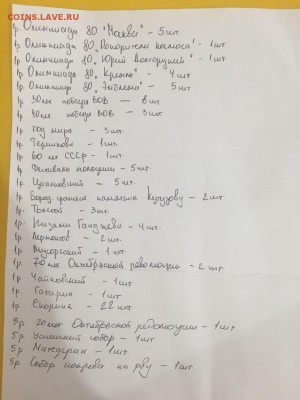 COINS.LAVE.RU
1р Олимпиада 80 "Москва" – 5 шт
1р Олимпиада 80 "Покорители космоса" – 1 шт
1р Олимпиада 80 "Юрий Долгорукий" – 1 шт
1р Олимпиада 80 "Кремль" – 4 шт
1р Олимпиада 80 "Эмблема" – 5 шт
1р 30 лет победа ВОВ – 8 шт
1р 40 лет победа ВОВ – 3 шт
1р год мира – 3 шт
1р Терешкова – 1 шт
1р 60 лет СССР – 1 шт
1р Фестиваль молодёжи – 5 шт
1р Циолковский – 5 шт
1р Бород. памятник Кутузову – 2 шт
1р Толстой – 3 шт
1р Низами Гянджеви – 4 шт
1р Лермонтов – 2 шт
1р Мусоргский – 1 шт
1р 70 лет Октябрьской революции – 2 шт
1р Чайковский – 1 шт
1р Гагарин – 1 шт
1р Скорина – 22 шт
5р 70 лет Октябрьской революции – 1 шт
5р Успенский собор – 1 шт
5р Матедаран – 1 шт
5р Собор покрова на рву – 1 шт